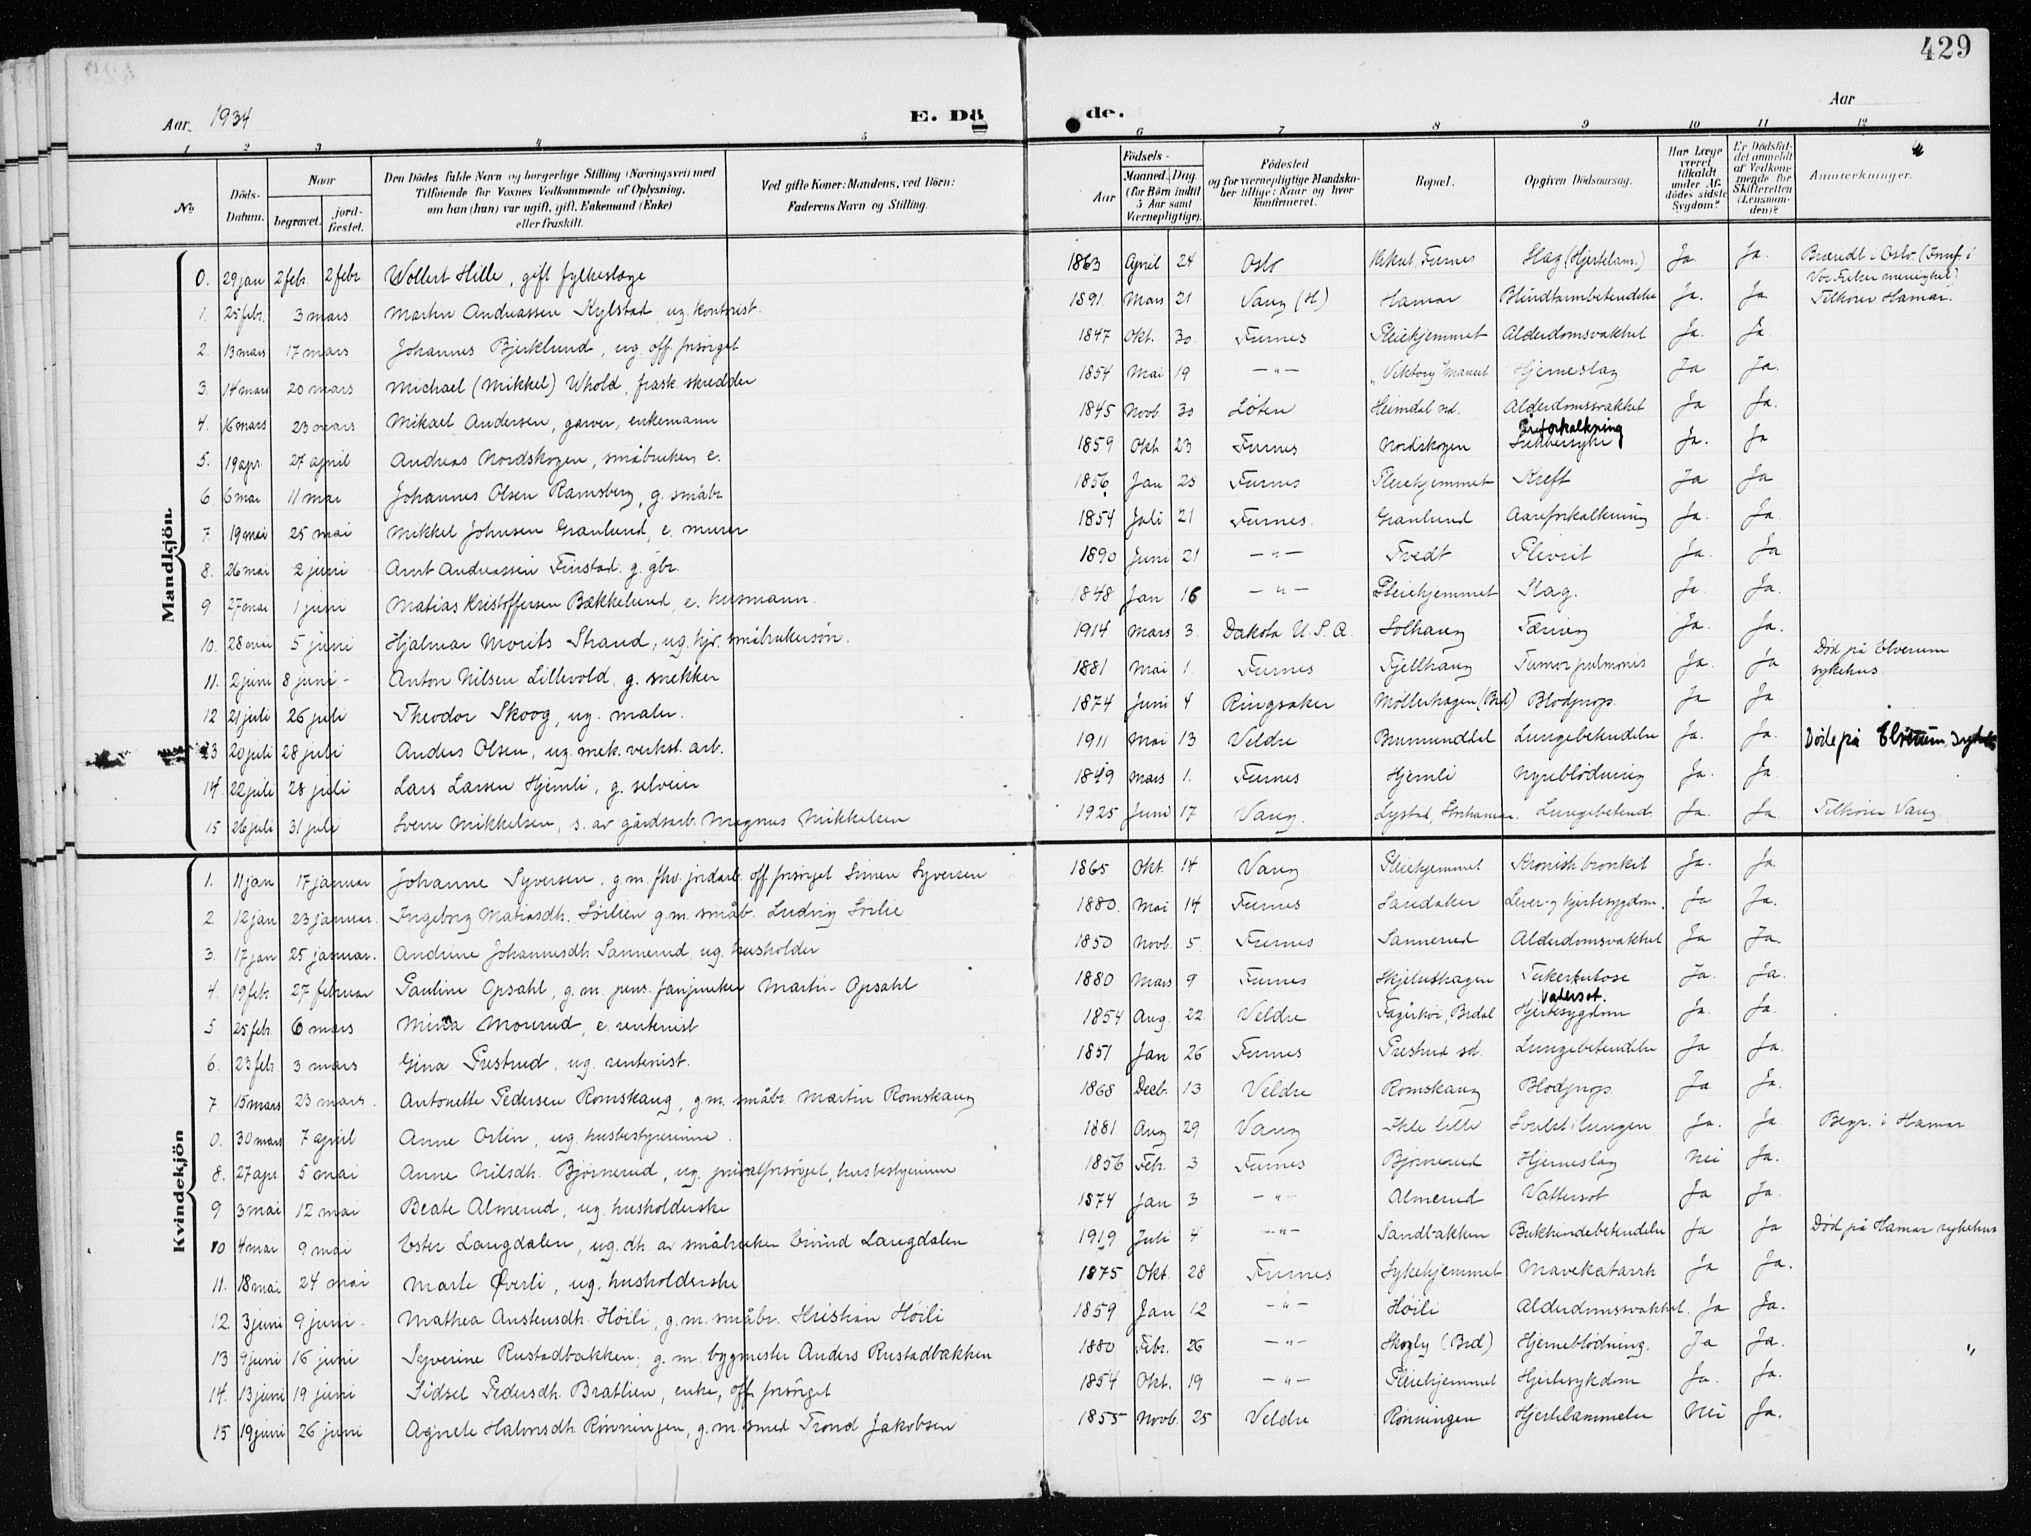 429
Aar 1934
E. Dö de.
Aar
1 2 3 4 5 6 7 8 9 10 11 12
No.
Döds-Datum.
Naar
begravet.
jord-fæstet.
Den Dödes fulde Navn og borgerlige Stilling (Næringsvei) med
Tilföiende for Voxnes Vedkommende af Oplysning,
om han (hun) var ugift, gift, Enkemand (Enke)
eller fraskilt.
Ved gifte Koner: Mandens, ved Börn:
Faderens Navn og Stilling.
Födsels-
Aar
Maaned. Dag.
(for Börn indtil
5 Aar samt
Værnepligtige).
Födested
og for værnepligtige Mandska-
ber tillige: Naar og hvor
konfirmeret.
Bopæl.
Opgiven Dödsaarsag.
Har Læge
været
tilkaldt
under Af-
dödes sidste
Sygdom?
Er Dödsfal-
det anmeldt
af Vedkom-
mende for
Skifteretten
(Lensman-
den)?
Anmærkninger.
Mandkjön.
0. 29 jan 2 febr. 2 febr Wollert Hille, gift fylkeslæge 1863 April 24 Oslo Furnes Slag (Hjertelam.) Ja. Ja. Brændt i Oslo
1. 25 febr. 3 mars Martin Andreassen Kylstad, ug. kontorist. 1891 Mars 21 Vang (H) Hamar Blindtarmbetendelse Ja. Ja. Tilhörer Hamar.
2. 13 mars 17 mars Johannes Bjerklund, ug. off. forsörget 1847 Okt. 30 Furnes Pleiehjemmet Alderdomsvakhet Ja. Ja.
3. 14 mars 20 mars Michael (Mikkel) Uhold, frask. skredder 1854 Mai 19 —"— Hjerneslag Ja Ja.
4. 16 mars 23 mars Mikael Andersen, garver, enkemann 1845 Novb. 30 Løten Heimdal nd. Alderdomssvakhet Ja Ja.
5. 19 apr. 27 april Andreas Nordskogen, småbruker, e. 1859 Okt 23 Furnes Nordskogen Åreforkalkning Ja. Ja
6 6 mai 11 mai Johannes Olsen Ramsberg, g. småbr. 1856 Jan 25 Furnes Pleiehjemmet Kreft Ja Ja
7 19 mai 25 mai Mikkel Johnsen Granlund, e. murer 1854 Juli 21 Furnes. Granlund Aareforkalkning Ja. Ja.
8. 26 mai 2 juni Arnt Andreassen Finstad. g. gbr. 1890 Juni 21 —"— Tvedt Plevrit Ja. Ja
9. 27 mai 1 juni Matias Kristoffersen Bækkelund, e. husmann 1848 Jan 16 —"— Pleiehjemmet Slag. Ja. Ja.
10. 28 mai 5 juni Hjalmar Morits Strand, ug. hjv. småbrukersøn. 1914 Mars 3. Dakota U.S.A. Solhaug Tæring Ja. Ja.
11. 2 juni 8 juni - Anton Nilsen Lillevold, g. snekker 1881 Mai 1. Furnes Fjellhaug Tumor pulmonis Ja. Ja Död på Elverum sykehus.
12 21 juli 26 juli Theodor Skoog, ug. maler. 1874 Juni 4 Ringsaker Möllerhagen (Brd) Blodprop. Ja Ja
13 20 juli 28 juli Anders Olsen, ug. mek. verkst. arb. 1911 Mai 13 Veldre Brumunddal Lungebetendelse Ja. Ja. Döde på Elverum
14 22 juli 28 juli Lars Larsen Hjemli, g. selveier 1849 Mars 1. Furnes Hjemli Nyreblödning Ja. Ja
15 26 juli 31 juli Sverre Mikkelsen, s. av gårdsarb. Magnus Mikkelsen 1925 Juni 17 Vang. Lystad, Storhamar. Lungebetend. Ja. Ja. Tilhörer Vang
Kvindekjön
1. 11 jan 17 januar Johanne Syversen, g.m. fhv. jordarb. off. forsörget Simen Syversen 1865 Okt. 14 Vang Pleiehjemmet Kronisk bronkit Ja. Ja
2. 12 jan 23 januar. Ingeborg Matiasdtr. Sörlien g.m. småb. Ludvig Sörlie 1880. Mai 14 Furnes Sandaker Lever- og hjertesygdom. Ja Ja.
3. 17 jan 25 januar. Andrine Johannesdtr. Sannerud, ug. husholder 1850 Novb. 5. Furnes Sannerud Alderdomsvakhet Ja Ja.
4. 19 febr. 27 februar Pauline Opsahl, g.m. pens. fanjunker Martin Opsahl 1880 Mars 9 Furnes Skjeludhagen Tuberkulose Ja. Ja.
5 25 febr. 6 mars Mina Morerud, e. rentenist 1854 Aug. 22. Veldre Brdal Vatersot. Hjertesygdom Ja. Ja.
6. 23 febr. 3 mars Gina Prestrud, ug. rentenist. 1851 Jan 26 Furnes Prestrud sd. Lungebetendelse Ja Ja.
7 15 mars 23 mars. Antonette Pedersen Romskaug, g.m. småbr. Martin Romskaug 1868 Decb. 13 Veldre Romskaug Blodprop. Ja Ja.
0. 30 mars 7 april Anne Orlin, ug. husbestyrerinne. 1881 Aug 29 Vang Ihle lille Svulst i lungen Ja. Ja Begr. i Hamar
8. 27 apr. 5 mai Anne Nilsdtr. Bjørnerud, ug. privatforsörget, husbestyrerinne 1856 Feb. 3 Furnes Bjørnerud Hjerneslag Nei Ja.
9 3 mai 12 mai Beate Almerud, ug. husholderske 1874 Jan 3 —"— Almerud Vattersot Ja Ja.
10 4 mai 9 mai Ester Langdalen, ug. dtr. av småbruker Eivind Langdalen 1919 Juli 4 —"— Sandbakken Bukhindebetendelse Ja Ja Död på Hamar sykehus
11. 18 mai 24 mai Marte Øverli, ug. husholderske 1875 Okt. 28 Furnes Sykehjemmet Mavekatarrh Ja Ja.
12. 3 juni 9 juni - Mathea Anstensdtr. Höili, g.m. småbr. Kristian Höili 1859 Jan 12 —"— Höili Alderdomssvakhet. Ja Ja.
13 9 juni 16 juni Syverine Rustadbakken, g.m. bygmester Anders Rustadbakken 1880 Febr. 26 —"— Skogly (Brd) Hjerneblödning. Ja Ja. "
14. 13 juni 19 juni Sidsel Pedersdtr. Bratlien, enke, off. forsörget 1854 Okt. 19 —"— Pleiehjemmet Hjertesykdom Ja. Ja.
15 19 juni 26 juni Agnete Halvorsdtr. Rönningen, g.m. smed Trond Jakobsen 1855 Novb. 25 Veldre Rønningen Hjertelammelse Nei Ja.